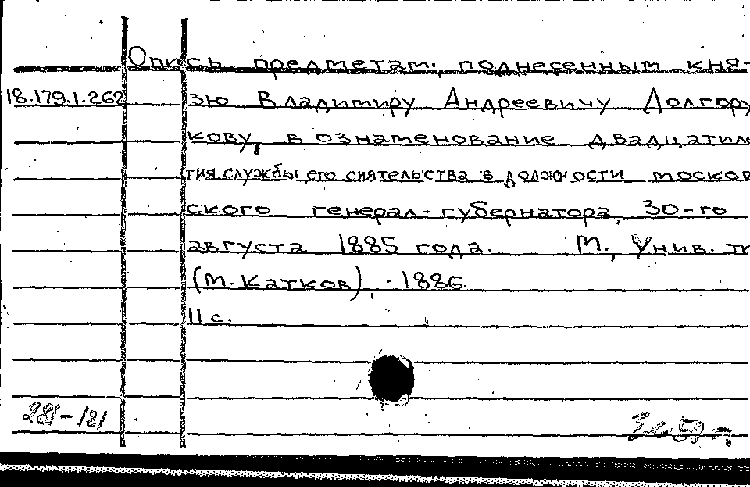 Опись предметам, поднесенным кня-
18.179.1.262 зю Владимиру Андреевичу Долгору
кову, в ознаменование двадцатиле
тия службы его сиятельства в должности москов
ского генерал-губернатора, 30-го
августа 1885 года. М., Унив. ти
(М. Катков), 1886.
11 с.
281-181